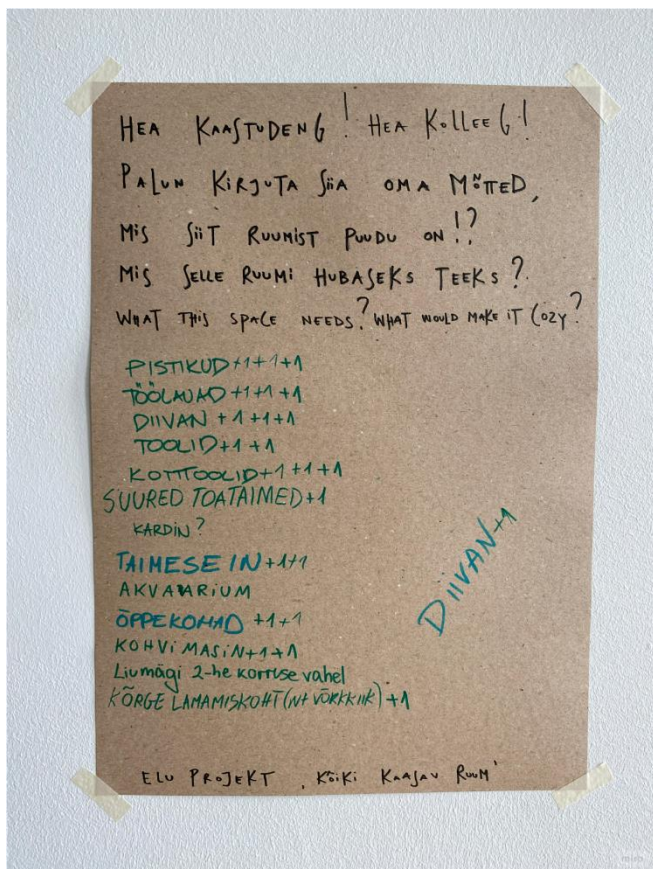 HEA KAASTUDENG! HEA KOLLEEG!
PALUN KIRJUTA SIIA OMA MÕTTED,
MIS SIIT RUUMIST PUUDU ON!?
MIS SELLE RUUMI HUBASEKS TEEKS?
WHAT THIS SPACE NEEDS? WHAT WOULD MAKE IT COZY?
PISTIKUD+1+1+1
TÖÖLAUAD+1+1+1
DIIVAN +1+1+1
TOOLID+1+1
KOTTTOOLID+1+1+1
SUURED TOATAIMED+1
KARDIN?
TAIMESEIN+1+1
AKVAARIUM
ÕPPEKOHAD +1+1
KOHVIMASIN+1+1
Liumägi 2-he korruse vahel
KÕRGE LAMAMISKOHT (nt VÕRKKIIK)+1
DIIVAN+1
ELU PROJEKT "KÕIKI KAASAV RUUM"
miro